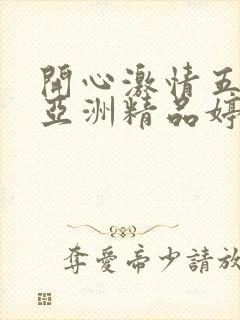 開心激情五
亞洲精品婷
奪愛帝少請放